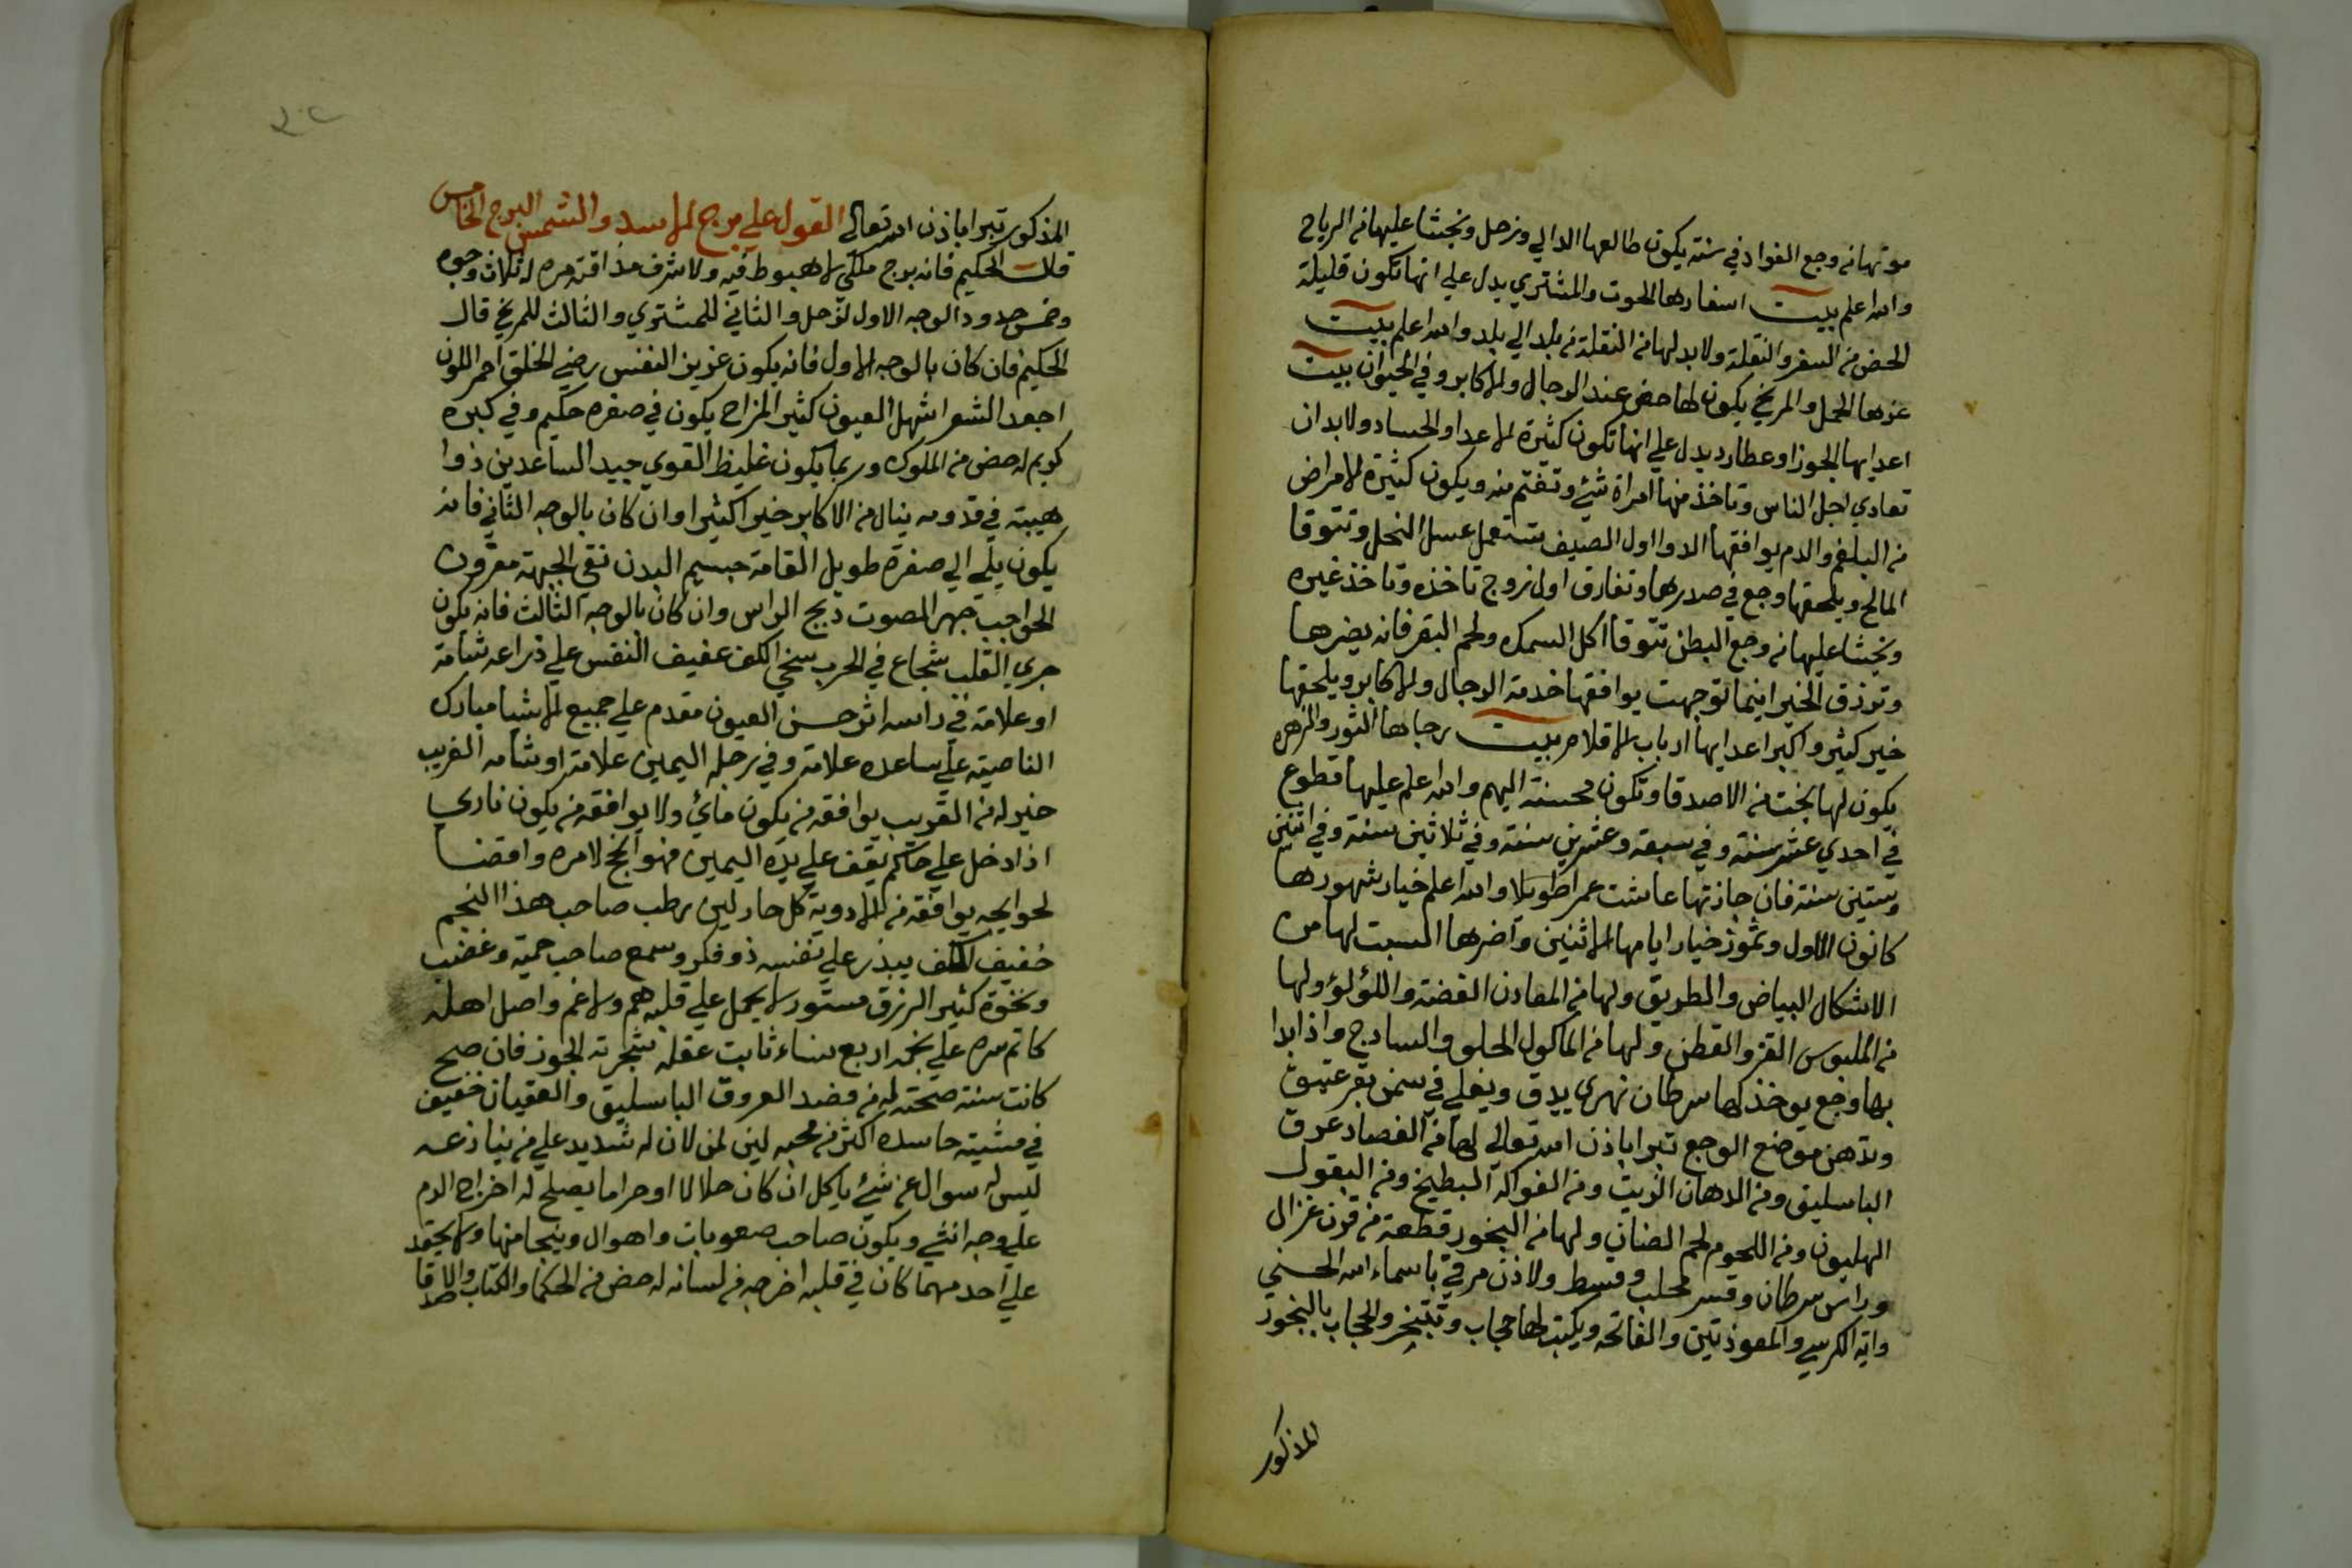 موتها من وجع الفواد في سنة يكون طالعها الدالي وزحل ويخشا عليها من الرياح
والله اعلم بيت اسفارها الحوت والمشتري يدل علي انها تكون قليلة
الحض من السفر والنقلة ولا بد لها من النقلة من بلد الي بلد والله اعلم بيت
عزها الحمل والمريخ يكون لها حض عند الرجال والاكابر وفي الحيوان بيت
اعدايها الجوزا وعطارد يدل علي انها تكون كثيرة الاعدا والحساد ولا بد ان
تعادي اجل الناس وتاخذ منها امراة شئ وتغتم منه ويكون كثيرة الامراض
من البلغم والدم يوافقها الدوا اول الصيف تستعمل عسل النحل وتتوقا
المالح ويلحقها وجع في صدرها وتفارق اول زوج تاخذه وتاخذ غيره
ويخشا عليها من وجع البطن تتوقا اكل السمك ولحم البقر فانه يضرها
وترزق الخير اينما توجهت يوافقها خدمة الرجال والاكابر ويلحقها
خير كثير واكبر اعدايها ارباب الاقلام بيت رجاها الثور والزهره
يكون لها بخت من الاصدقا وتكون محسنة اليهم والله اعلم عليها قطوع
في احدي عشر سنة وفي سبعة وعشرين سنة وفي ثلاثين سنة وفي اثنين
وستين سنة فان جازتها عاشت عمرا طويلا والله اعلم خيار شهورها
كانون الاول وتموز خيار ايامها الاثنين واضرها السبت لها من
الاشكال البياض والطريق ولها من المعادن الفضة واللؤلؤ ولها
من الملبوس القز والقطن ولها من الماكول الحلو والسادج واذا بدا
بها وجع يوخذ لها سرطان نهري يدق ويغلي في سمن بقر عتيق
وتدهن موضع الوجع تبرا باذن الله تعالي لها من الفصاد عرق
الباسليق ومن الادهان الزيت ومن الفواكه البطيخ ومن البقول
الهليون ومن اللحوم لحم الضان ولها من البخور قطعة من قرن غزال
وراس سرطان وقسر محلب وقسط ولاذن مرقي باسماء الله الحسني
واية الكرسي والمعوذتين والفاتحه ويكتب لها حجاب وتتبخر والحجاب بالبخور
المذكور
المذكور تبرا باذن الله تعالي القول علي برج الاسد والشمس البرج الخامس
قال الحكيم فانه برج ملكي لا هبوط فيه ولا شرف مذاقته مره له ثلاث وجوه
وخمس حدود الوجه الاول لزحل والثاني للمشتري والثالث للمريخ قال
الحكيم فان كان بالوجه الاول فانه يكون عزيز النفس رضي الخلق احمر اللون
اجعد الشعر اشهل العيون كثير المزاح يكون في صغره حكيم وفي كبره
كريم له حض من الملوك وربما يكون غليظ القوي جيد الساعدين ذوا
هيبة في قدومه ينال من الاكابر خيرا كثيرا وان كان بالوجه الثاني فانه
يكون يلي الي صفرة طويل القامة جسيم البدن نقي الجبهة مقرون
الحواجب جهر الصوت دبج الراس وان كان بالوجه الثالث فانه يكون
جري القلب شجاع في الحرب سخي الكف عفيف النفس علي ذراعه شامة
او علامة في راسه اثر حسن العيون مقدم علي جميع الاشيا مبارك
الناصية علي ساعده علامة وفي رجله اليمين علامة او شامه الغريب
خير له من القريب يوافقه من يكون مائي ولا يوافقه من يكون ناري
اذا دخل علي حاكم يقف علي يده اليمين فهو انجح لامره واقضا
لحوايجه يوافقه من الادوية كل حار لين رطب صاحب هذا النجم
خفيف الكف يبذر علي نفسه ذو فكر وسمع صاحب حمية وغضب
ونخوة كثير الرزق مستور لا يحمل علي قلبه هم ولا غم واصل اهله
كاتم سره علي نجمه اربع نساء ثابت عقله شجرته الجوز فان صح
كانت سنة صحته له من فصد العروق الباسليق والعقيان خفيف
في مشيته حاسده اكثر من محبه لين لمن لان له شديد علي من ينازعه
ليس له سوال عن شئ ياكل ان كان حلالا او حراما يصلح له اخراج الدم
علي وجه انثي ويكون صاحب صعوبات واهوال وينجا منها ولا يحقد
علي احد مهما كان في قلبه اخرجه من لسانه له حض من الحكما والكتاب والاصدقا